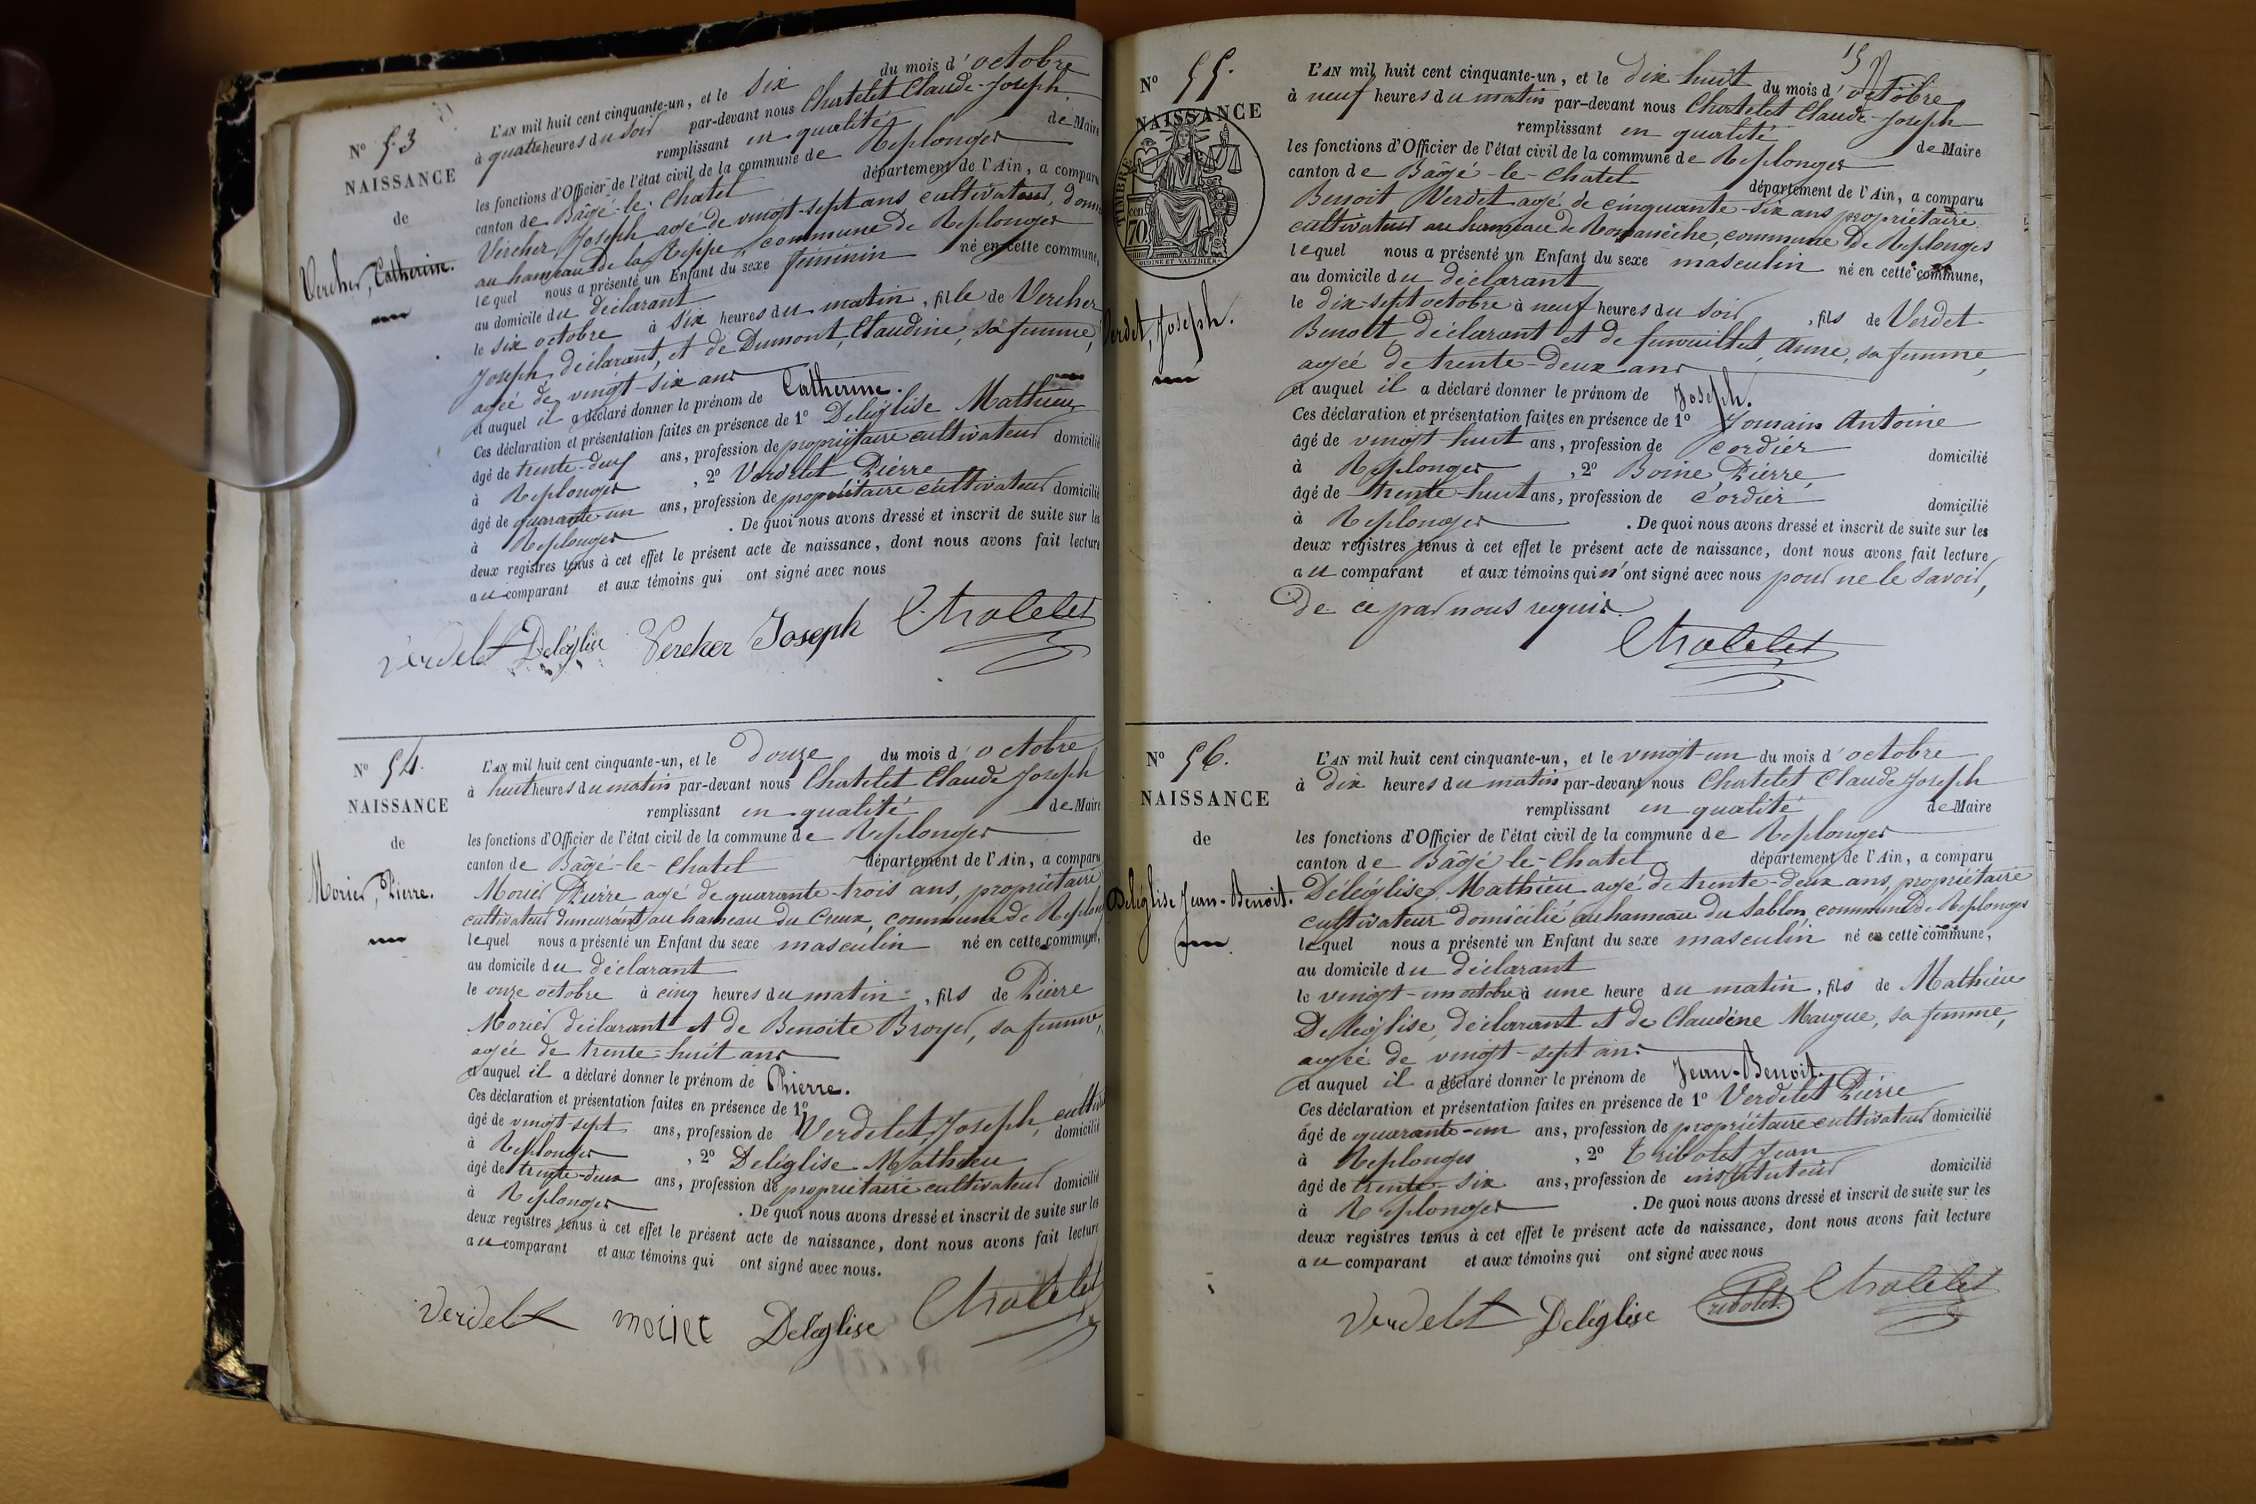 N° 53
NAISSANCE
de
Vercher, Catherine.
L'AN mil huit cent cinquante-un, et le six du mois d'octobre
à quatre heures du soir par-devant nous Chatelet Claude-Joseph
remplissant en qualité de Maire
les fonctions d'Officier de l'état civil de la commune de Replonges
canton de Bâgé-le-Chatel département de l'Ain, a comparu
Vercher Joseph agé de vingt-sept ans cultivateur,
au hameau de la Teppe commune de Replonges
lequel nous a présenté un Enfant du sexe féminin né en cette commune,
au domicile du déclarant
le six octobre à six heures du matin, fille de Vercher
Joseph, déclarant, et de Dumont, Claudine, sa femme,
agée de vingt-six ans
et auquel il a déclaré donner le prénom de Catherine.
Ces déclaration et présentation faites en présence de 1° Deléglise Mathieu
âgé de trente-deux ans, profession de propriétaire cultivateur domicilié
à Replonges, 2° Verdelet Pierre
âgé de quarante-un ans, profession de propriétaire cultivateur domicilié
à Replonges. De quoi nous avons dressé et inscrit de suite sur les
deux registres tenus à cet effet le présent acte de naissance, dont nous avons fait lecture
au comparant et aux témoins qui ont signé avec nous
Verdelet Deléglise Vercher Joseph Chatelet
N° 54.
NAISSANCE
de
Morier, Pierre.
L'AN mil huit cent cinquante-un, et le douze du mois d'octobre
à huit heures du matin par-devant nous Chatelet Claude Joseph
remplissant en qualité de Maire
les fonctions d'Officier de l'état civil de la commune de Replonges
canton de Bâgé-le-Chatel département de l'Ain, a comparu
Morier Pierre agé de quarante-trois ans, propriétaire
cultivateur demeurant au hameau du Creux, commune de Replon
lequel nous a présenté un Enfant du sexe masculin né en cette commune,
au domicile du déclarant
le onze octobre à cinq heures du matin, fils de Pierre
Morier déclarant et de Benoite Broyer, sa femme,
agée de trente-huit ans
et auquel il a déclaré donner le prénom de Pierre.
Ces déclaration et présentation faites en présence de 1°
âgé de vingt-sept ans, profession de Verdelet Joseph, domicilié
à Replonges, 2° Deléglise Mathieu
âgé de trente-deux ans, profession de propriétaire cultivateur domicilié
à Replonges. De quoi nous avons dressé et inscrit de suite sur les
deux registres tenus à cet effet le présent acte de naissance, dont nous avons fait lecture
au comparant et aux témoins qui ont signé avec nous.
Verdelet Morier Deléglise Chatelet
N° 55.
NAISSANCE
TIMBRE
70
Verdet, Joseph.
L'AN mil huit cent cinquante-un, et le dix-huit du mois d'octobre
à neuf heures du matin par-devant nous Chatelet Claude-Joseph
remplissant en qualité de Maire
les fonctions d'Officier de l'état civil de la commune de Replonges
canton de Bâgé-le-Chatel département de l'Ain, a comparu
Benoit Verdet agé de cinquante-six ans propriétaire
cultivateur au hameau de Romanèche, commune de Replonges
lequel nous a présenté un Enfant du sexe masculin né en cette commune,
au domicile du déclarant
le dix-sept octobre à neuf heures du soir, fils de Verdet
Benoit, déclarant et de Anne, sa femme,
agée de trente-deux ans
et auquel il a déclaré donner le prénom de Joseph.
Ces déclaration et présentation faites en présence de 1° Antoine
âgé de vingt huit ans, profession de cordier domicilié
à Replonges, 2° Pierre,
âgé de trente-huit ans, profession de cordier domicilié
à Replonges. De quoi nous avons dressé et inscrit de suite sur les
deux registres tenus à cet effet le présent acte de naissance, dont nous avons fait lecture
au comparant et aux témoins qui n'ont signé avec nous pour ne le savoir,
de ce par nous requis.
Chatelet
N° 56.
NAISSANCE
de
Deléglise Jean-Benoit.
L'AN mil huit cent cinquante-un, et le vingt-un du mois d'octobre
à dix heures du matin par-devant nous Chatelet Claude Joseph
remplissant en qualité de Maire
les fonctions d'Officier de l'état civil de la commune de Replonges
canton de Bâgé-le-Chatel département de l'Ain, a comparu
Déléglise Mathieu agé de trente-deux ans, propriétaire
cultivateur domicilié au hameau du Sablon, commune de Replonges
lequel nous a présenté un Enfant du sexe masculin né en cette commune,
au domicile du déclarant
le vingt-un octobre à une heure du matin, fils de Mathieu
Deléglise, déclarant et de Claudine Maugue, sa femme,
agée de vingt-sept ans
et auquel il a déclaré donner le prénom de Jean-Benoit.
Ces déclaration et présentation faites en présence de 1° Verdelet Pierre
âgé de quarante-un ans, profession de propriétaire cultivateur domicilié
à Replonges, 2° Tribolet Jean
âgé de trente-six ans, profession de instituteur domicilié
à Replonges. De quoi nous avons dressé et inscrit de suite sur les
deux registres tenus à cet effet le présent acte de naissance, dont nous avons fait lecture
au comparant et aux témoins qui ont signé avec nous
Verdelet Deléglise Tribolet Chatelet